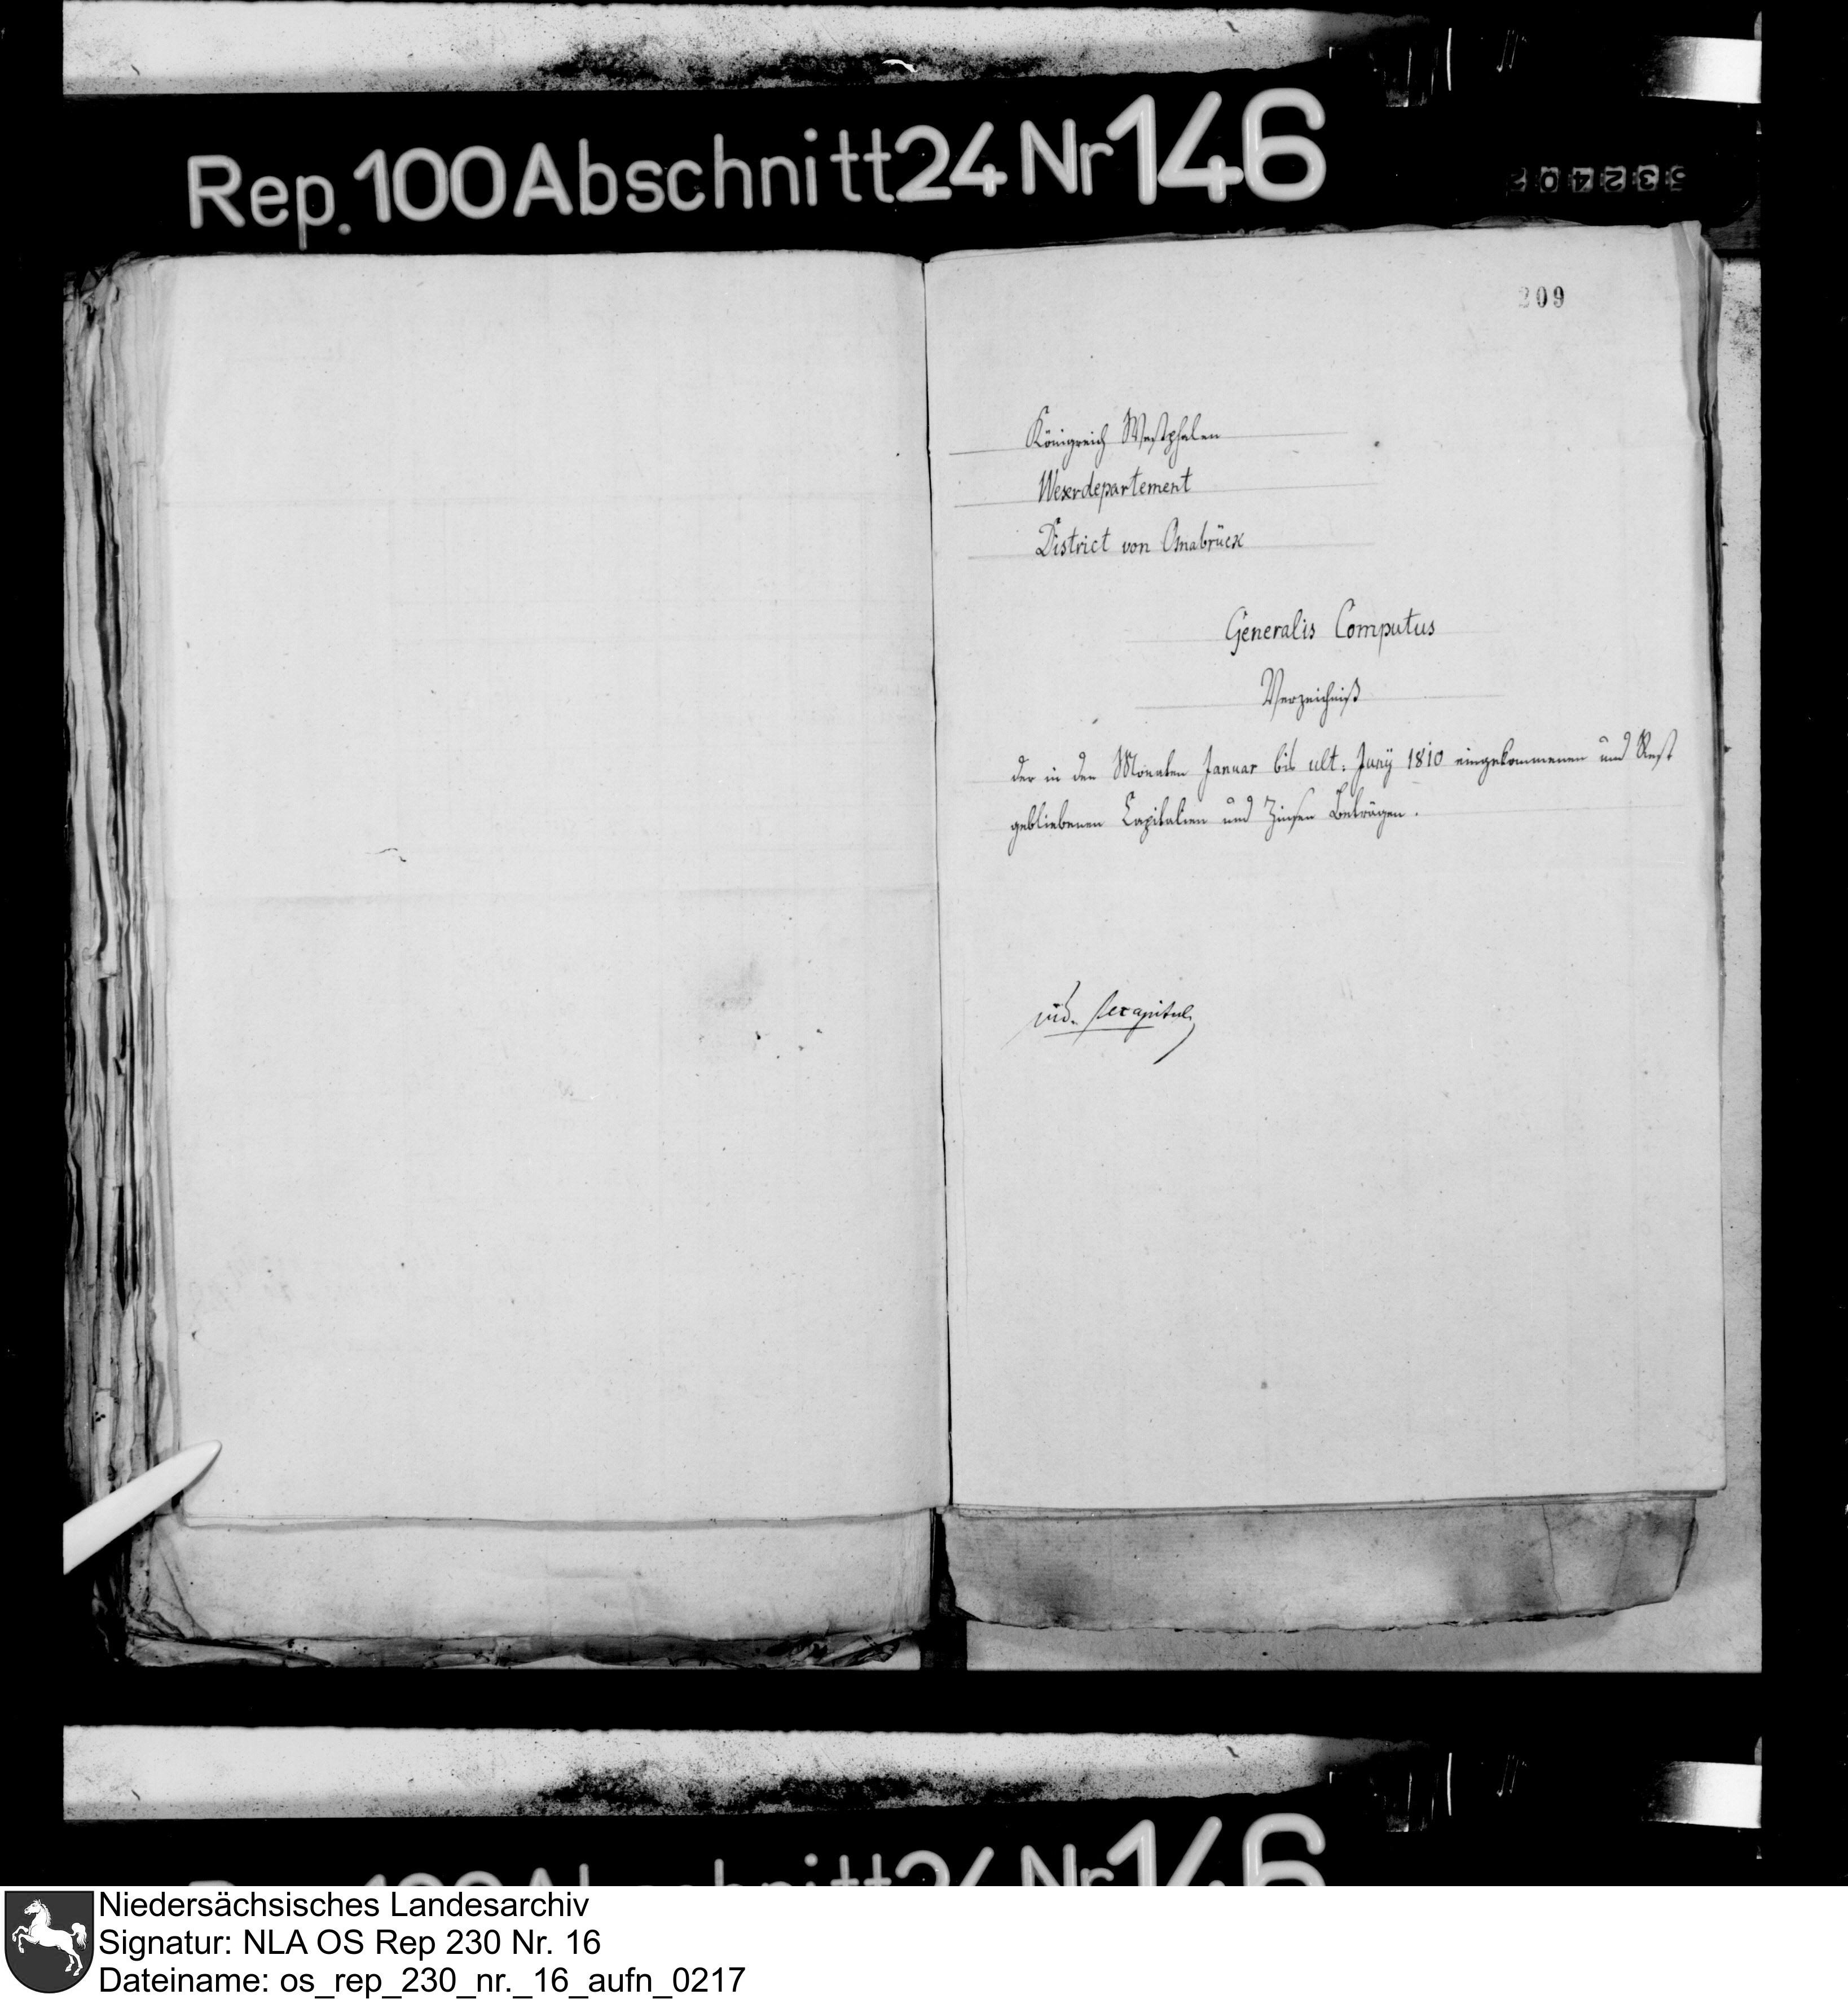 Rep. 100 Abschnitt 24 Nr 146
209
Königreich Westphalen
Weserdepartement
District von Osnabrück
Generalis Computus
Verzeichniß
der in den Monaten Januar bis ult: Juny 1810 eingekommenen und Rest
gebliebenen Capitalien und Zinsen Beträgen.
vid. Recapitul
Niedersächsisches Landesarchiv
Signatur: NLA OS Rep 230 Nr. 16
Dateiname: os_rep_230_nr._16_aufn_0217